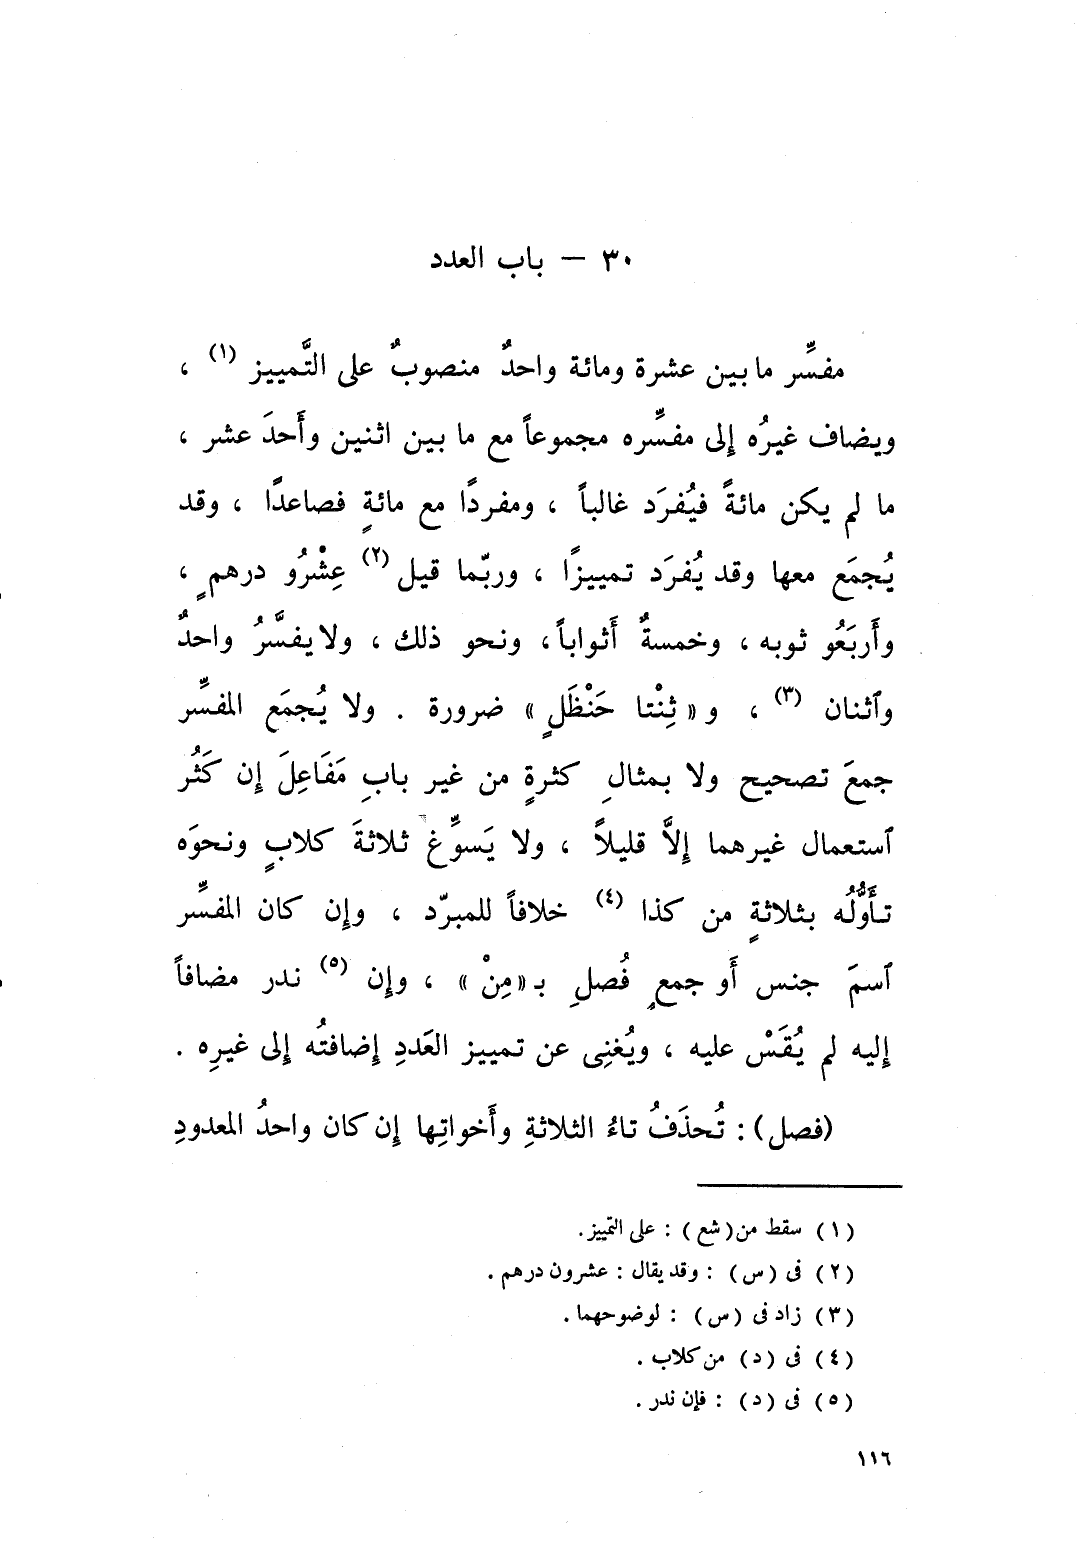 ٣٠ — باب العدد
مفسِّر ما بين عشرة ومائة واحدٌ منصوبٌ على التَّمييز (١) ،
ويضاف غيرُه إلى مفسِّره مجموعاً مع ما بين اثنين وأَحدَ عشر ،
ما لم يكن مائةً فيُفرَد غالباً ، ومفردًا مع مائةٍ فصاعدًا ، وقد
يُجمَع معها وقد يُفرَد تمييزًا ، وربّما قيل (٢) عِشْرُو درهمٍ ،
وأَربَعُو ثوبه ، وخمسةٌ أَثواباً ، ونحو ذلك ، ولا يفسَّرُ واحدٌ
وٱثنان (٣) ، و « ثِنْتا حَنْظَلٍ » ضرورة . ولا يُجمَع المفسِّر
جمعَ تصحيح ولا بمثالِ كثرةٍ من غير بابِ مَفَاعِلَ إِن كَثُر
ٱستعمال غيرهما إِلاَّ قليلاً ، ولا يَسوِّغ ثلاثةَ كلابٍ ونحوَه
تأَوُّلُه بثلاثةٍ من كذا (٤) خلافاً للمبرّد ، وإِن كان المفسِّر
ٱسمَ جنس أَو جمعٍ فُصلِ بـ «مِنْ» ، وإِن (٥) ندر مضافاً
إِليه لم يُقَسْ عليه ، ويُغنِى عن تمييز العَددِ إِضافتُه إِلى غيرِه .
(فصل) : تُحذَفُ تاءُ الثلاثةِ وأَخواتِها إِن كان واحدُ المعدودِ
(١) سقط من (شع) : على التمييز .
(٢) فى (س) : وقد يقال : عشرون درهم .
(٣) زاد فى (س) : لوضوحهما .
(٤) فى (د) من كلاب .
(٥) فى (د) : فإن ندر .
١١٦